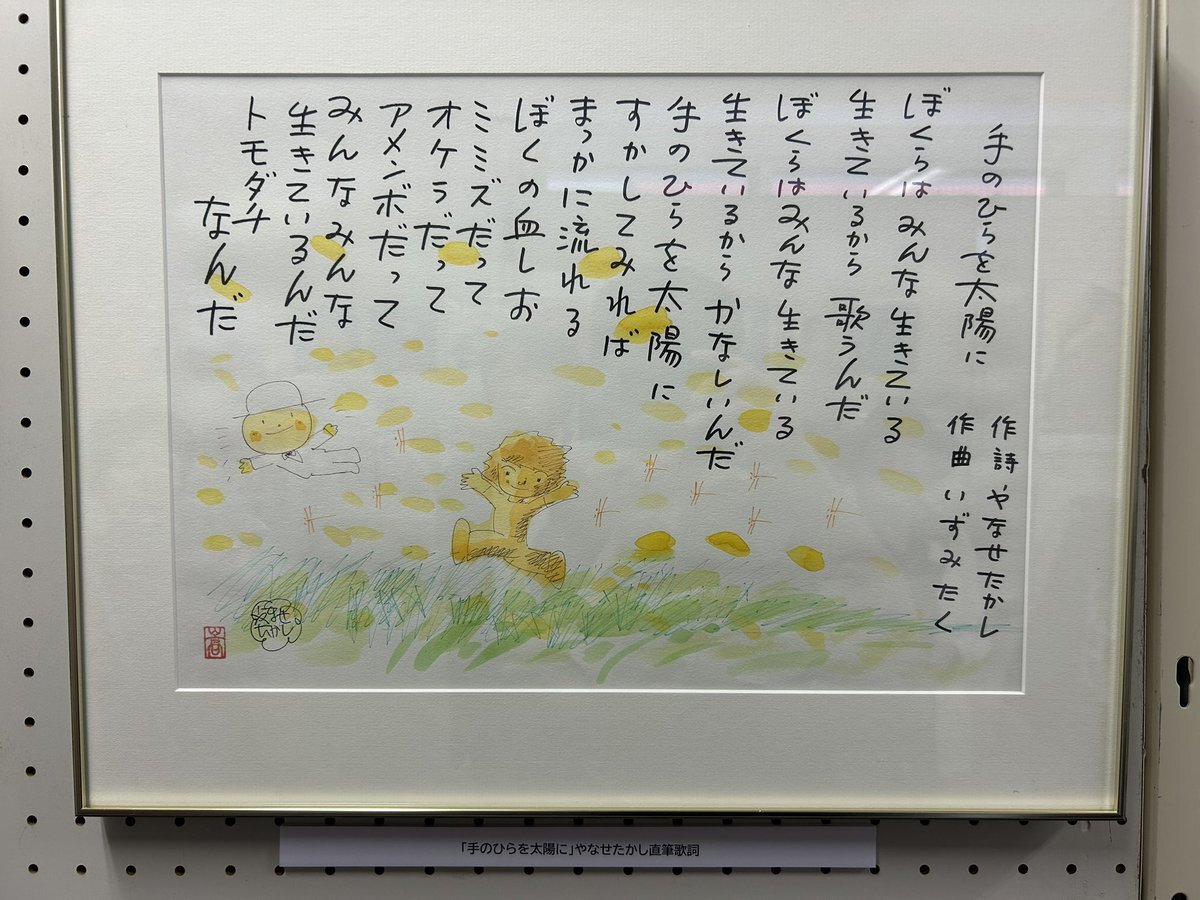 手のひらを太陽に
作詩 やなせたかし
作曲 いずみたく
ぼくらは みんな 生きている
生きているから 歌うんだ
ぼくらはみんな 生きている
生きているから かなしいんだ
手のひらを太陽に
すかしてみれば
まっかに流れる
ぼくの血しお
ミミズだって
オケラだって
アメンボだって
みんなみんな
生きているんだ
トモダチ
なんだ
やなせ
たかし
嵩
「手のひらを太陽に」やなせたかし直筆歌詞